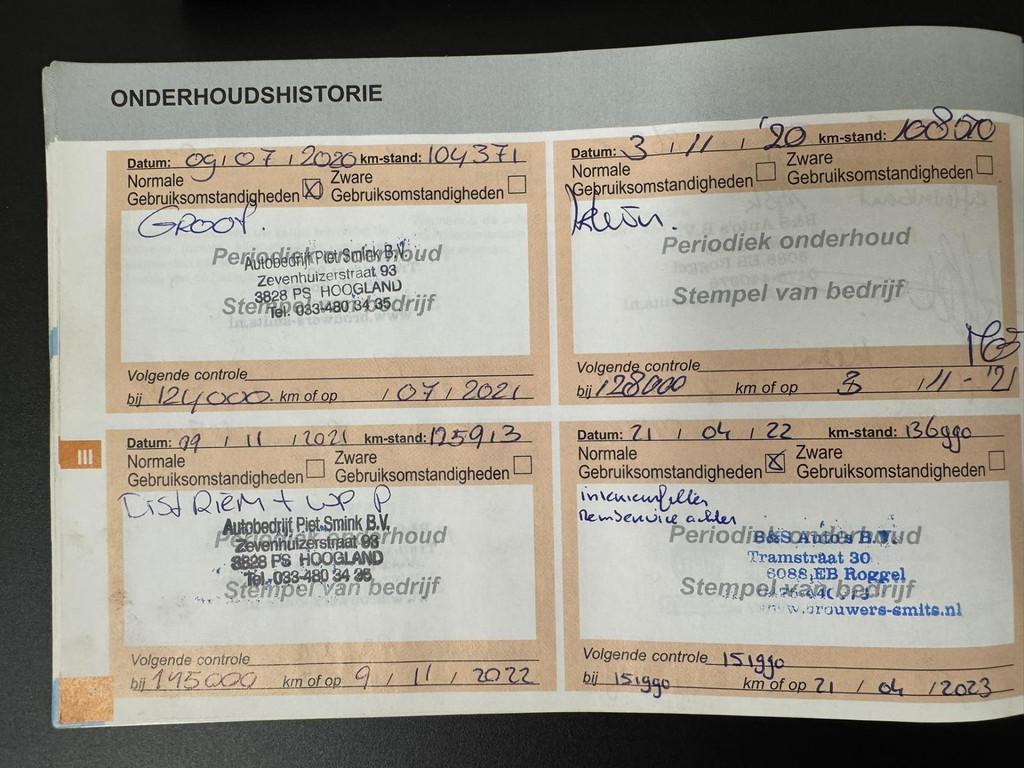 ONDERHOUDSHISTORIE
Datum: 09 / 07 / 2020 km-stand: 104371
Normale Gebruiksomstandigheden ☒ Zware Gebruiksomstandigheden ☐
GROOT.
Periodiek onderhoud
Autobedrijf Piet Smink B.V.
Zevenhuizerstraat 93
3828 PS HOOGLAND
Stempel van bedrijf
Tel. 033-480 34 35
Volgende controle
bij 124000. km of op / 07 / 2021
Datum: 3 / 11 / '20 km-stand: 108570
Normale Gebruiksomstandigheden ☐ Zware Gebruiksomstandigheden ☐
klein.
Periodiek onderhoud
Stempel van bedrijf
Volgende controle
bij 128000 km of op 3 / 11 - '21
III
Datum: 09 / 11 / 2021 km-stand: 125913
Normale Gebruiksomstandigheden ☐ Zware Gebruiksomstandigheden ☐
DistRiem + WP
Autobedrijf Piet Smink B.V.
Periodiek onderhoud
Zevenhuizerstraat 93
3828 PS HOOGLAND
Tel. 033-480 34 35
Stempel van bedrijf
Volgende controle
bij 145000 km of op 9 / 11 / 2022
Datum: 21 / 04 / 22 km-stand: 136990
Normale Gebruiksomstandigheden ☒ Zware Gebruiksomstandigheden ☐
interieurfilter
Remservice achter
Periodiek onderhoud
B&S Auto's B.V.
Tramstraat 30
6088 EB Roggel
Stempel van bedrijf
www.brouwers-smits.nl
Volgende controle 151990
bij 151990 km of op 21 / 04 / 2023